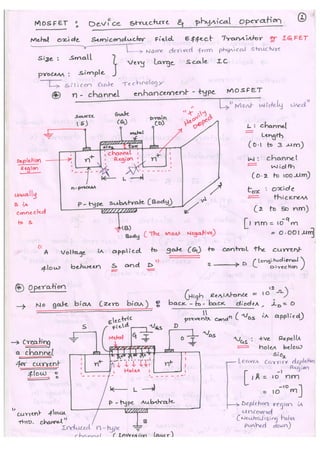 ①
MOSFET : Device structure & physical operation
Metal oxide Semiconductor Field Effect Transistor or IGFET
↳ Name derived from physical structure
Size : Small
Very Large Scale IC
process : Simple
↳ Silicon Gate Technology
n - channel enhancement - type MOSFET
↳ "Most widely used"
Source (S)
Gate (G)
Drain (D)
"+" Heavily Doped
metal
channel Region
Depletion Region
n+
n+
L
n-process
P-type Substrate (Body)
Usually B is connected to S
(B)
Body (The Most Negative)
L : channel Length
(0.1 to 3 μm)
W : channel Width
(0.2 to 100 μm)
tox : oxide thickness
(2 to 50 nm)
[1 nm = 10⁻⁹ m
= 0.001 μm]
"A Voltage is applied to gate (G) to control the current
flow between S and D"
S → D (longitudinal Direction)
Operation
(High Resistance = 10¹² Ω)
→ No gate bias (zero bias) : back-to-back diodes, iD = 0
prevents cond" (VDS is applied)
→ Creating a channel for current flow :
S
Electric Field
VGS
G
D
VDS
Metal
n+
n+
Holes
L
P-type substrate
B
"current flows thro. channel"
Induced n-type channel (Inversion layer)
VGS : +ve Repells Holes below SiO2
Leaves carrier depletion Region
[1Å = 10⁻¹ nm
= 10⁻¹⁰ m]
→ Depletion region is uncovered
(Neutralizing holes pushed down)